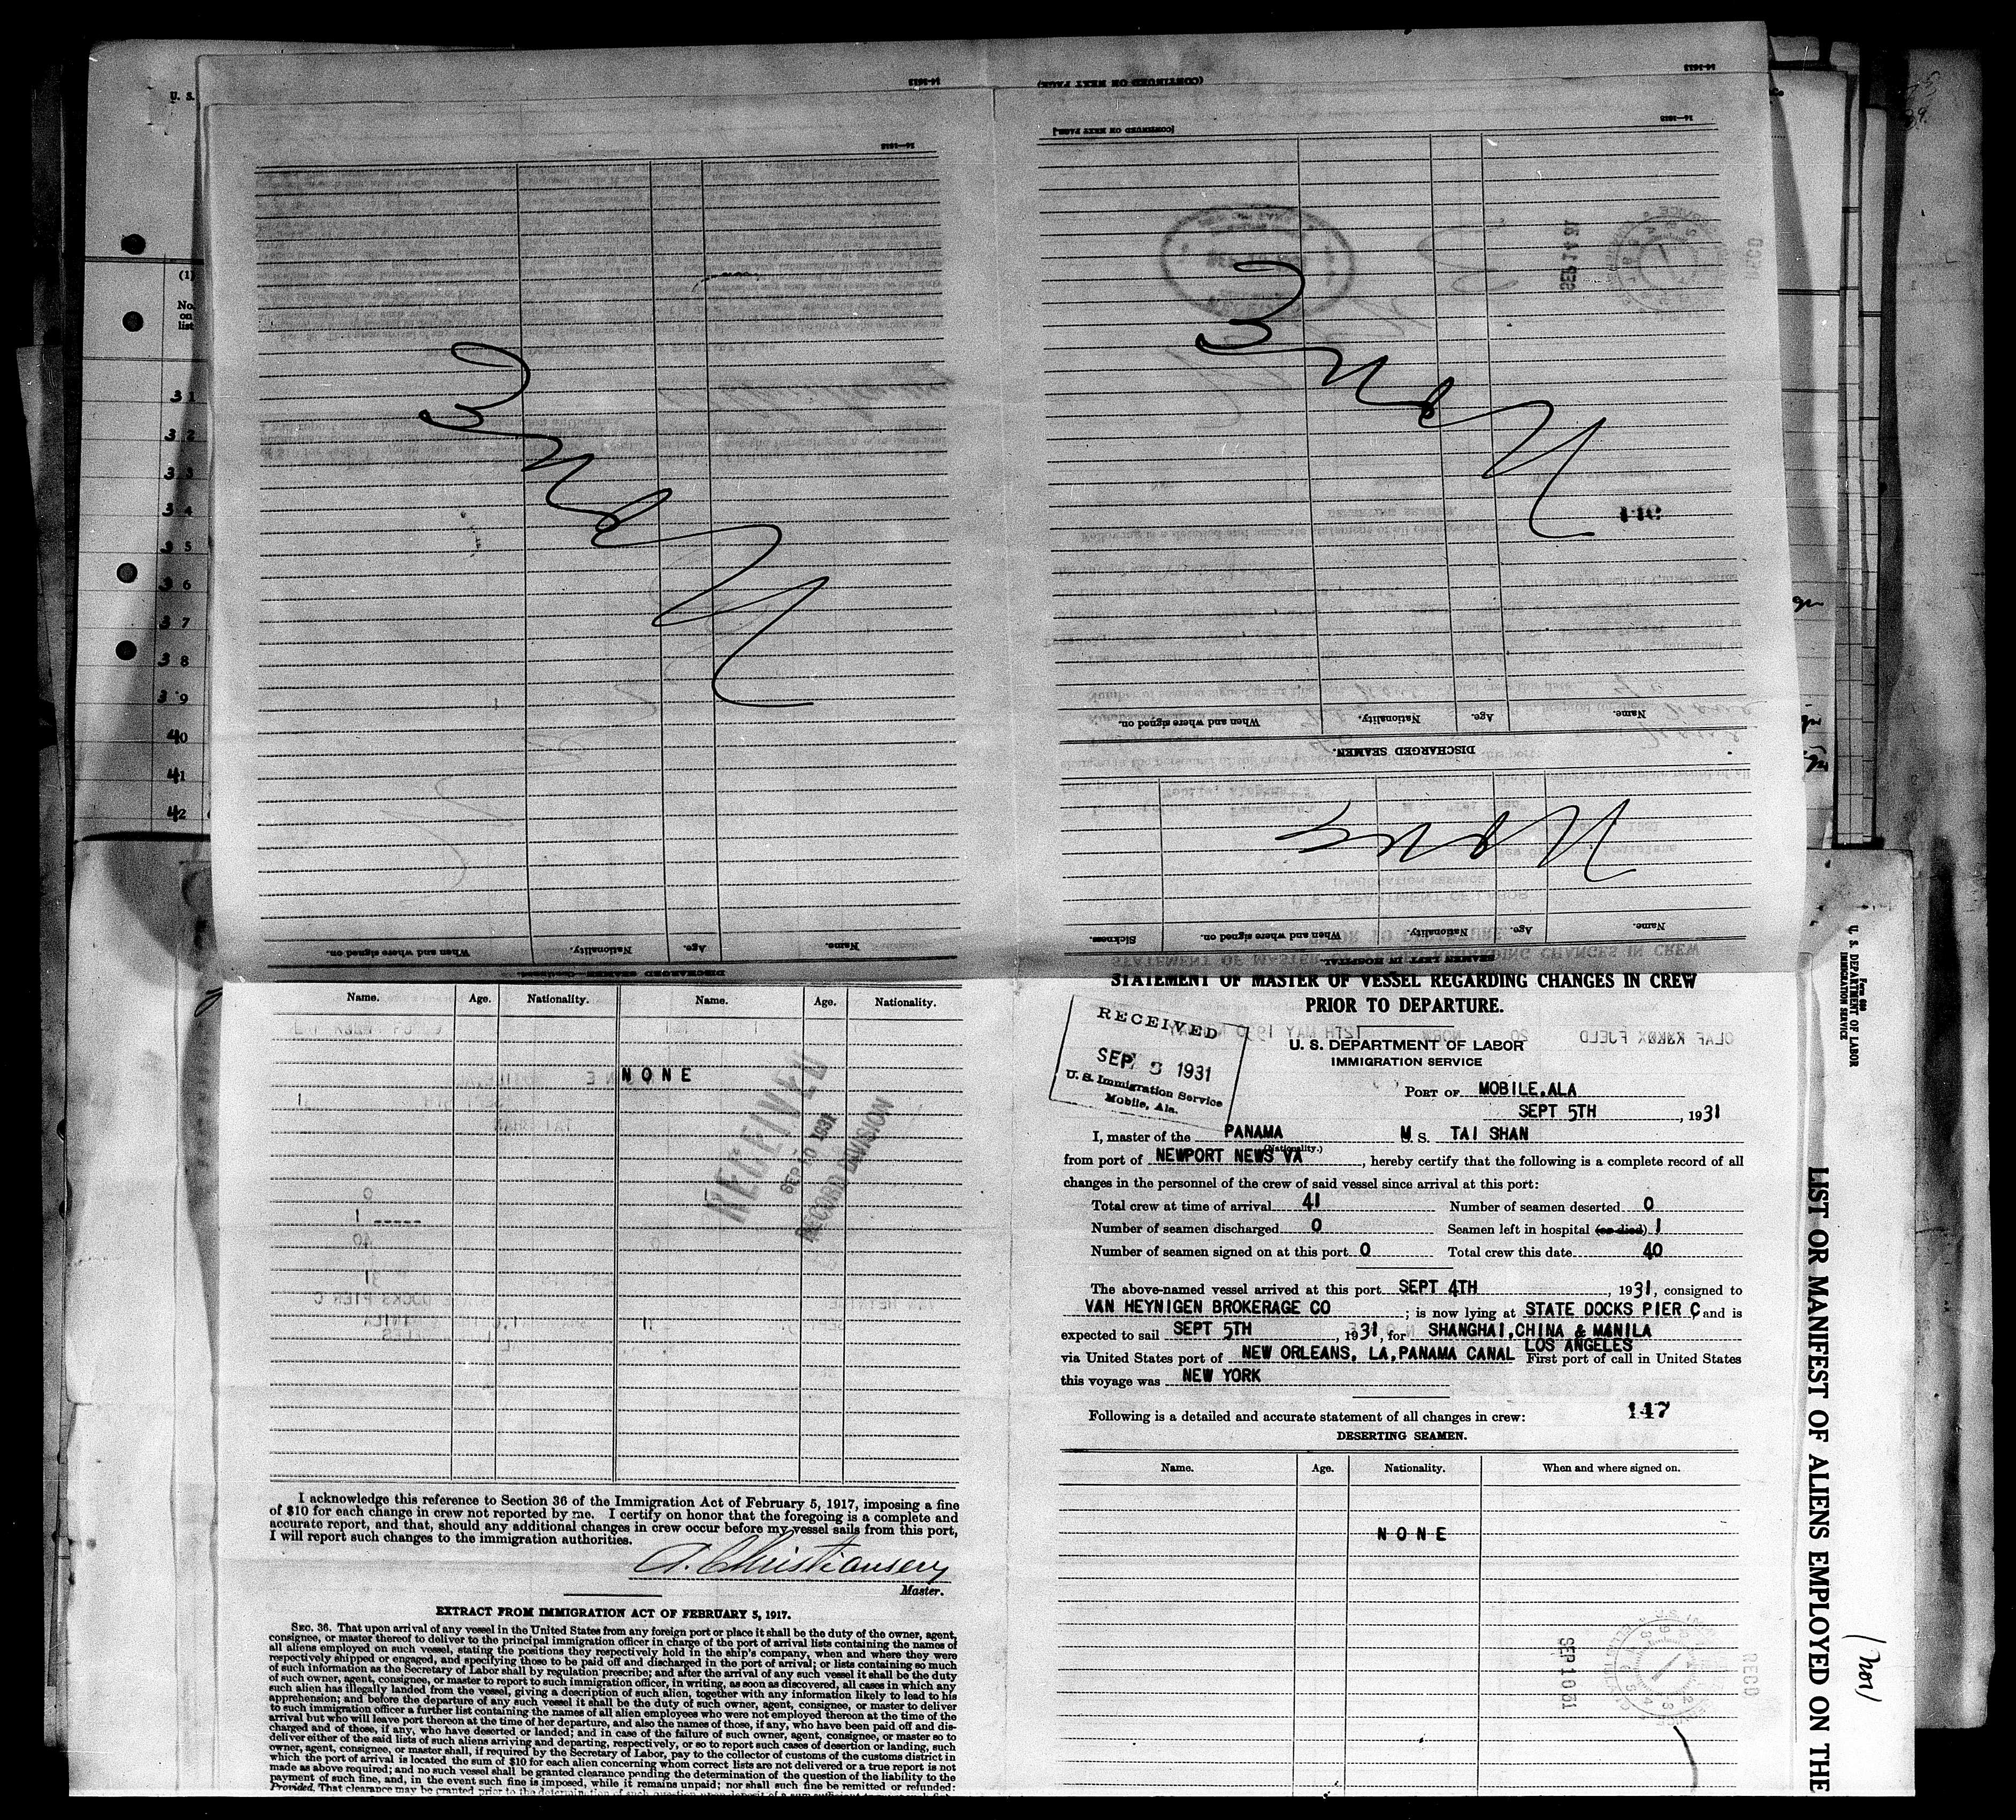 U. S.
(1)
No.
on
list
31
32
33
34
35
36
37
38
39
40
41
42
14-1613
(CONTINUED ON NEXT PAGE)
14-1613
14-1613
None
[CONTINUED ON NEXT PAGE]
14-1613
SEP 14 31
None
Name. Age. Nationality. When and where signed on.
DISCHARGED SEAMEN.
None
Name. Age. Nationality. When and where signed on. Sickness.
SEAMEN LEFT IN HOSPITAL
Name. Age. Nationality. When and where signed on.
DISCHARGED SEAMEN—Continued.
Name. Age. Nationality. Name. Age. Nationality.
NONE
RECEIVED
SEP 10 1931
RECORD DIVISION
I acknowledge this reference to Section 36 of the Immigration Act of February 5, 1917, imposing a fine
of $10 for each change in crew not reported by me. I certify on honor that the foregoing is a complete and
accurate report, and that, should any additional changes in crew occur before my vessel sails from this port,
I will report such changes to the immigration authorities.
A. Christiansen
Master.
EXTRACT FROM IMMIGRATION ACT OF FEBRUARY 5, 1917.
SEC. 36. That upon arrival of any vessel in the United States from any foreign port or place it shall be the duty of the owner, agent,
consignee, or master thereof to deliver to the principal immigration officer in charge of the port of arrival lists containing the names of
all aliens employed on such vessel, stating the positions they respectively hold in the ship's company, when and where they were
respectively shipped or engaged, and specifying those to be paid off and discharged in the port of arrival; or lists containing so much
of such information as the Secretary of Labor shall by regulation prescribe; and after the arrival of any such vessel it shall be the duty
of such owner, agent, consignee, or master to report to such immigration officer, in writing, as soon as discovered, all cases in which any
such alien has illegally landed from the vessel, giving a description of such alien, together with any information likely to lead to his
apprehension; and before the departure of any such vessel it shall be the duty of such owner, agent, consignee, or master to deliver
to such immigration officer a further list containing the names of all alien employees who were not employed thereon at the time of the
arrival but who will leave port thereon at the time of her departure, and also the names of those, if any, who have been paid off and dis-
charged and of those, if any, who have deserted or landed; and in case of the failure of such owner, agent, consignee, or master so to
deliver either of the said lists of such aliens arriving and departing, respectively, or so to report such cases of desertion or landing, such
owner, agent, consignee, or master shall, if required by the Secretary of Labor, pay to the collector of customs of the customs district in
which the port of arrival is located the sum of $10 for each alien concerning whom correct lists are not delivered or a true report is not
made as above required; and no such vessel shall be granted clearance pending the determination of the question of the liability to the
payment of such fine, and, in the event such fine is imposed, while it remains unpaid; nor shall such fine be remitted or refunded:
Provided, That clearance may be granted prior to the determination of such question upon deposit of a sum sufficient
STATEMENT OF MASTER OF VESSEL REGARDING CHANGES IN CREW
PRIOR TO DEPARTURE.
RECEIVED
SEP 5 1931
U. S. Immigration Service
Mobile, Ala.
U. S. DEPARTMENT OF LABOR
IMMIGRATION SERVICE
PORT OF MOBILE, ALA
SEPT 5TH, 1931
I, master of the PANAMA M S. TAI SHAN
(Nationality.)
from port of NEWPORT NEWS VA, hereby certify that the following is a complete record of all
changes in the personnel of the crew of said vessel since arrival at this port:
Total crew at time of arrival 41 Number of seamen deserted 0
Number of seamen discharged 0 Seamen left in hospital (or died) 1
Number of seamen signed on at this port 0 Total crew this date 40
The above-named vessel arrived at this port SEPT 4TH, 1931, consigned to
VAN HEYNIGEN BROKERAGE CO; is now lying at STATE DOCKS PIER C and is
expected to sail SEPT 5TH, 1931, for SHANGHAI, CHINA & MANILA
LOS ANGELES
via United States port of NEW ORLEANS, LA, PANAMA CANAL First port of call in United States
this voyage was NEW YORK
Following is a detailed and accurate statement of all changes in crew: 147
DESERTING SEAMEN.
Name. Age. Nationality. When and where signed on.
NONE
SEP 10 31
REC'D
Form 680
U. S. DEPARTMENT OF LABOR
IMMIGRATION SERVICE
LIST OR MANIFEST OF ALIENS EMPLOYED ON THE